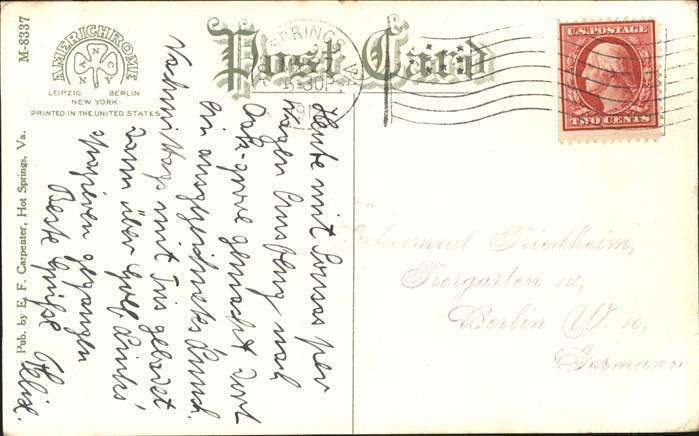 M-8337
Pub. by E. F. Carpenter, Hot Springs, Va.
AMERICHROME
A T
N N C Y
LEIPZIG BERLIN
NEW YORK
PRINTED IN THE UNITED STATES
Post Card
SPRINGS, VA.
30P
U.S. POSTAGE
TWO CENTS
Heute mit per
Wagen Ausflug nach
gemacht, dort
ein ausgezeichnetes Lunch.
Nachmittags mit gebadet
dann über Golf Links
spazieren gegangen
Beste Grüße Felix.
Geheimrat Friedheim,
Tiergarten 14,
Berlin W. 10,
Germany